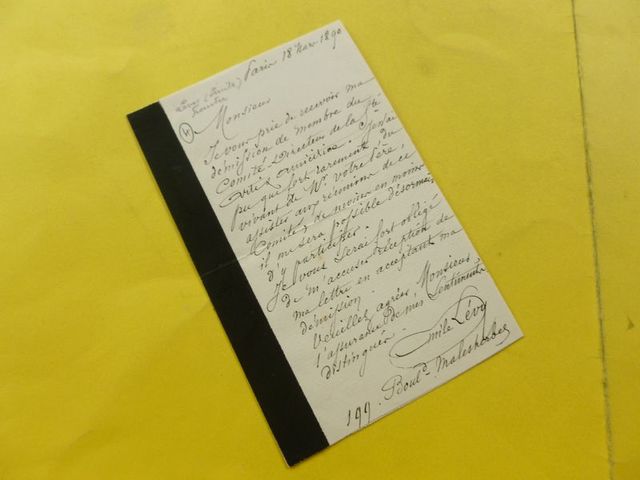 Paris 18 Mars 1890
Lévy (Emile)
Monsieur
Je vous prie de recevoir ma
démission de membre du
Comité Directeur de la Sté
Artis
pu que fort rarement du
vivant de Mr votre Père,
assister aux réunions de ce
Comité, de moins en moins
il me sera possible désormais
d'y participer.
Je vous serai fort obligé
de m'accuser réception de
ma lettre en acceptant ma
démission.
Veuillez agréer Monsieur
l'assurance de mes sentiments
distingués
Emile Lévy
199. Boulд Malesherbes